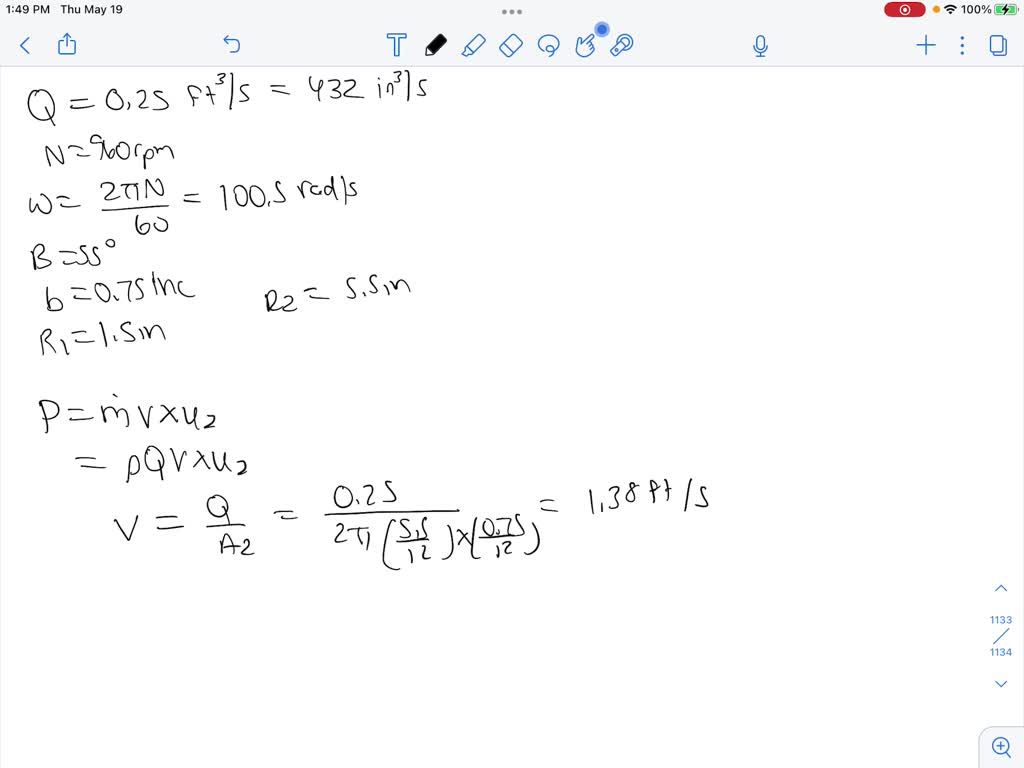 1:49 PM Thu May 19
100%
T
Q = 0.25 ft³/s = 432 in³/s
N=960rpm
W = 2πN/60 = 100.5 rad/s
B=55°
b=0.75 inc
R2 = 5.5in
R1=1.5in
P = ṁV×U2
= ρQV×U2
V = Q/A2 = 0.25/2π(5.5/12)×(0.75/12) = 1.38 ft/s
1133
/
1134